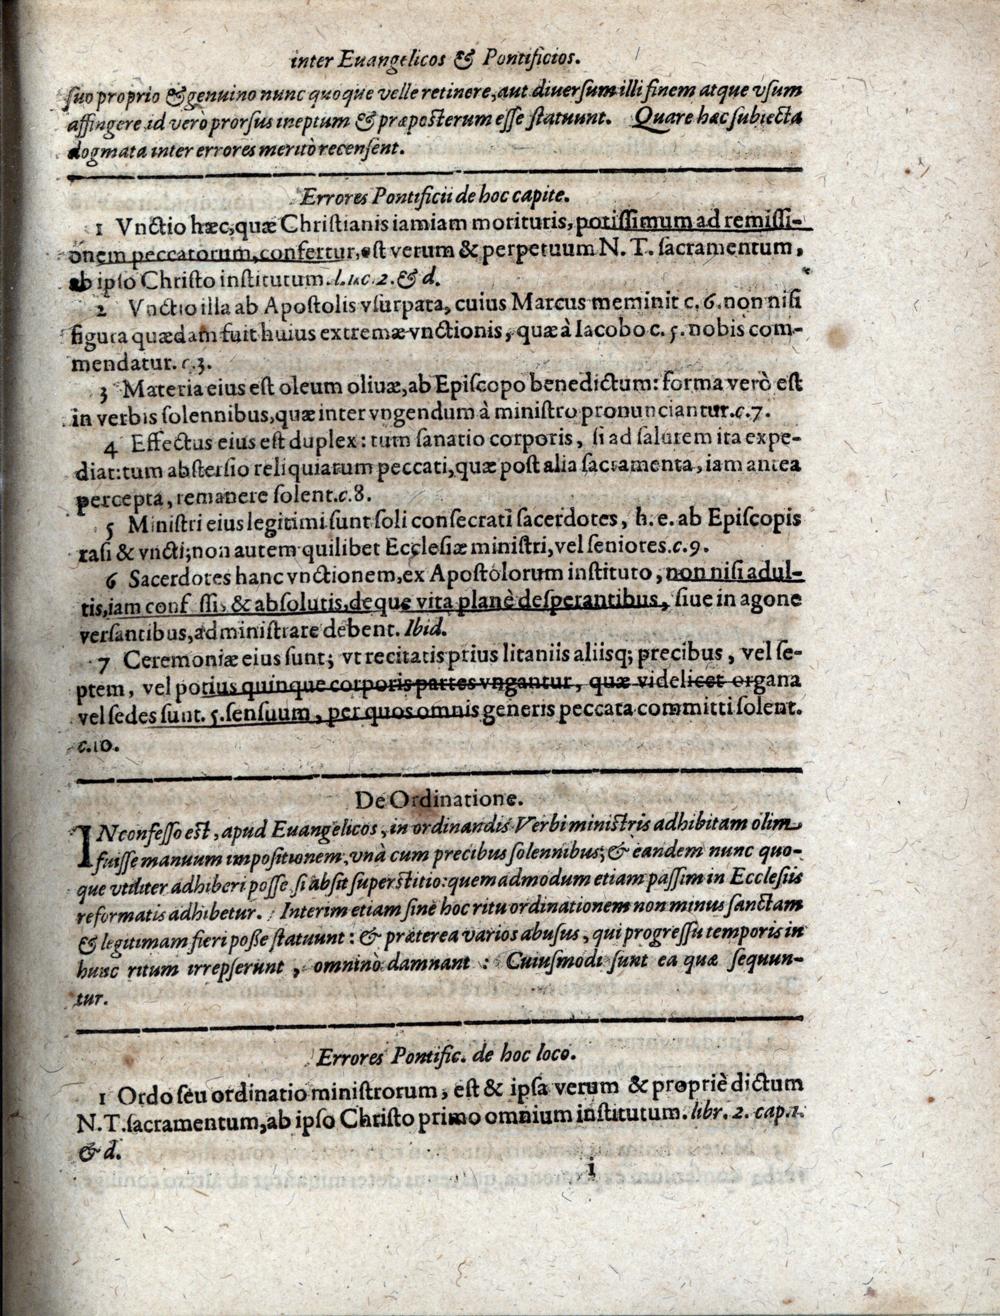 inter Euangelicos & Pontificios.
ſuo proprio & genuino nunc quoque velle retinere, aut diuerſum illi finem atque vſum
affingere id verò prorſus ineptum & præposterum eſſe ſtatuunt. Quare hæc ſubiecta
dogmata inter errores meritò recenſent.
Errores Pontificii de hoc capite.
1 Vnctio hæc, quæ Chriſtianis iamiam morituris, potiſſimum ad remiſſi-
onem peccatorum, confertur, eſt verum & perpetuum N. T. ſacramentum,
ab ipſo Chriſto inſtitutum. l. 1. c. 2. & d.
2 Vnctio illa ab Apoſtolis vſurpata, cuius Marcus meminit c. 6. non niſi
figura quædam fuit huius extremæ vnctionis, quæ à Iacobo c. 5. nobis com-
mendatur. c. 3.
3 Materia eius eſt oleum oliuæ, ab Epiſcopo benedictum: forma verò eſt
in verbis ſolennibus, quæ inter vngendum à miniſtro pronunciantur. c. 7.
4 Effectus eius eſt duplex: tum ſanatio corporis, ſi ad ſalutem ita expe-
diat: tum abſterſio reliquiarum peccati, quæ poſt alia ſacramenta, iam antea
percepta, remanere ſolent. c. 8.
5 Miniſtri eius legitimi ſunt ſoli conſecrati ſacerdotes, h. e. ab Epiſcopis
raſi & vncti; non autem quilibet Eccleſiæ miniſtri, vel ſeniores. c. 9.
6 Sacerdotes hanc vnctionem, ex Apoſtolorum inſtituto, non niſi adul-
tis, iam conf ſſis, & abſolutis, deque vita planè deſperantibus, ſiue in agone
verſantibus, adminiſtrare debent. Ibid.
7 Ceremoniæ eius ſunt; vt recitatis prius litaniis aliisq; precibus, vel ſe-
ptem, vel potius quinque corporis partes vngantur, quæ videlicet organa
vel ſedes ſunt. 5. ſenſuum, per quos omnis generis peccata committi ſolent.
c. 10.
De Ordinatione.
IN confeſſo est, apud Euangelicos, in ordinandis Verbi miniſtris adhibitam olim
fuiſſe manuum impoſitionem, vnà cum precibus ſolennibus; & eandem nunc quo-
que vtiliter adhiberi poſſe, ſi abſit ſuperſtitio: quemadmodum etiam paſſim in Eccleſiis
reformatis adhibetur. Interim etiam ſine hoc ritu ordinationem non minus ſanctam
& legitimam fieri poße ſtatuunt: & præterea varios abuſus, qui progreſſu temporis in
hunc ritum irrepſerunt, omninò damnant: Cuiuſmodi ſunt ea quæ ſequun-
tur.
Errores Pontific. de hoc loco.
1 Ordo ſeu ordinatio miniſtrorum, eſt & ipſa verum & propriè dictum
N. T. ſacramentum, ab ipſo Chriſto primo omnium inſtitutum. libr. 2. cap. 1.
& d.
i